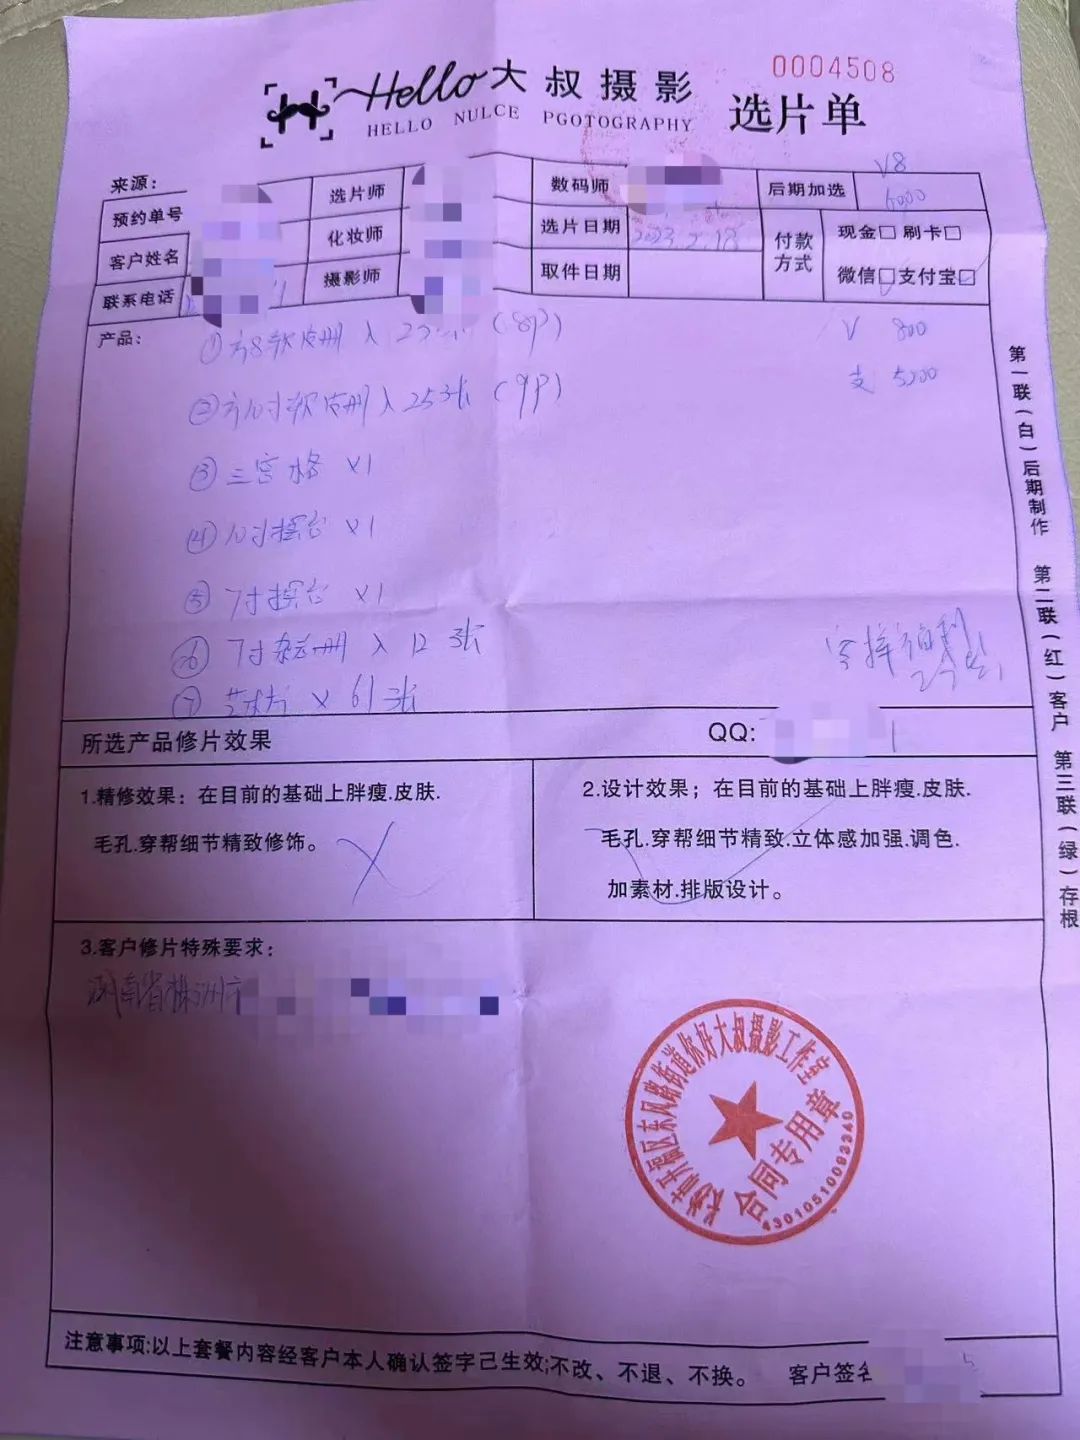 0004508
Hello大叔摄影 选片单
HELLO NULCE PGOTOGRAPHY
来源:
预约单号
客户姓名
联系电话
选片师
化妆师
摄影师
数码师
选片日期 2023.2.18
取件日期
后期加选 V8
6000
付款方式
现金□ 刷卡□
微信□支付宝□
产品:
① 方8软皮册 入 (8P)
② 方10寸软皮册 入 25张 (9P)
③ 三宫格 X1
④ 10寸摆台 X1
⑤ 7寸摆台 X1
⑥ 7寸杂志册 入 12张
⑦ 艺术片 x 61张
V 800
支 5200
第一联(白)后期制作 第二联(红)客户 第三联(绿)存根
所选产品修片效果
QQ:
1.精修效果:在目前的基础上胖瘦.皮肤.
毛孔.穿帮细节精致修饰。
2.设计效果;在目前的基础上胖瘦.皮肤.
毛孔.穿帮细节精致.立体感加强.调色.
加素材.排版设计。
3.客户修片特殊要求:
湖南省株洲市
长沙市开福区东风路街道你好大叔摄影工作室
合同专用章
43010510093340
注意事项:以上套餐内容经客户本人确认签字己生效;不改、不退、不换。 客户签名